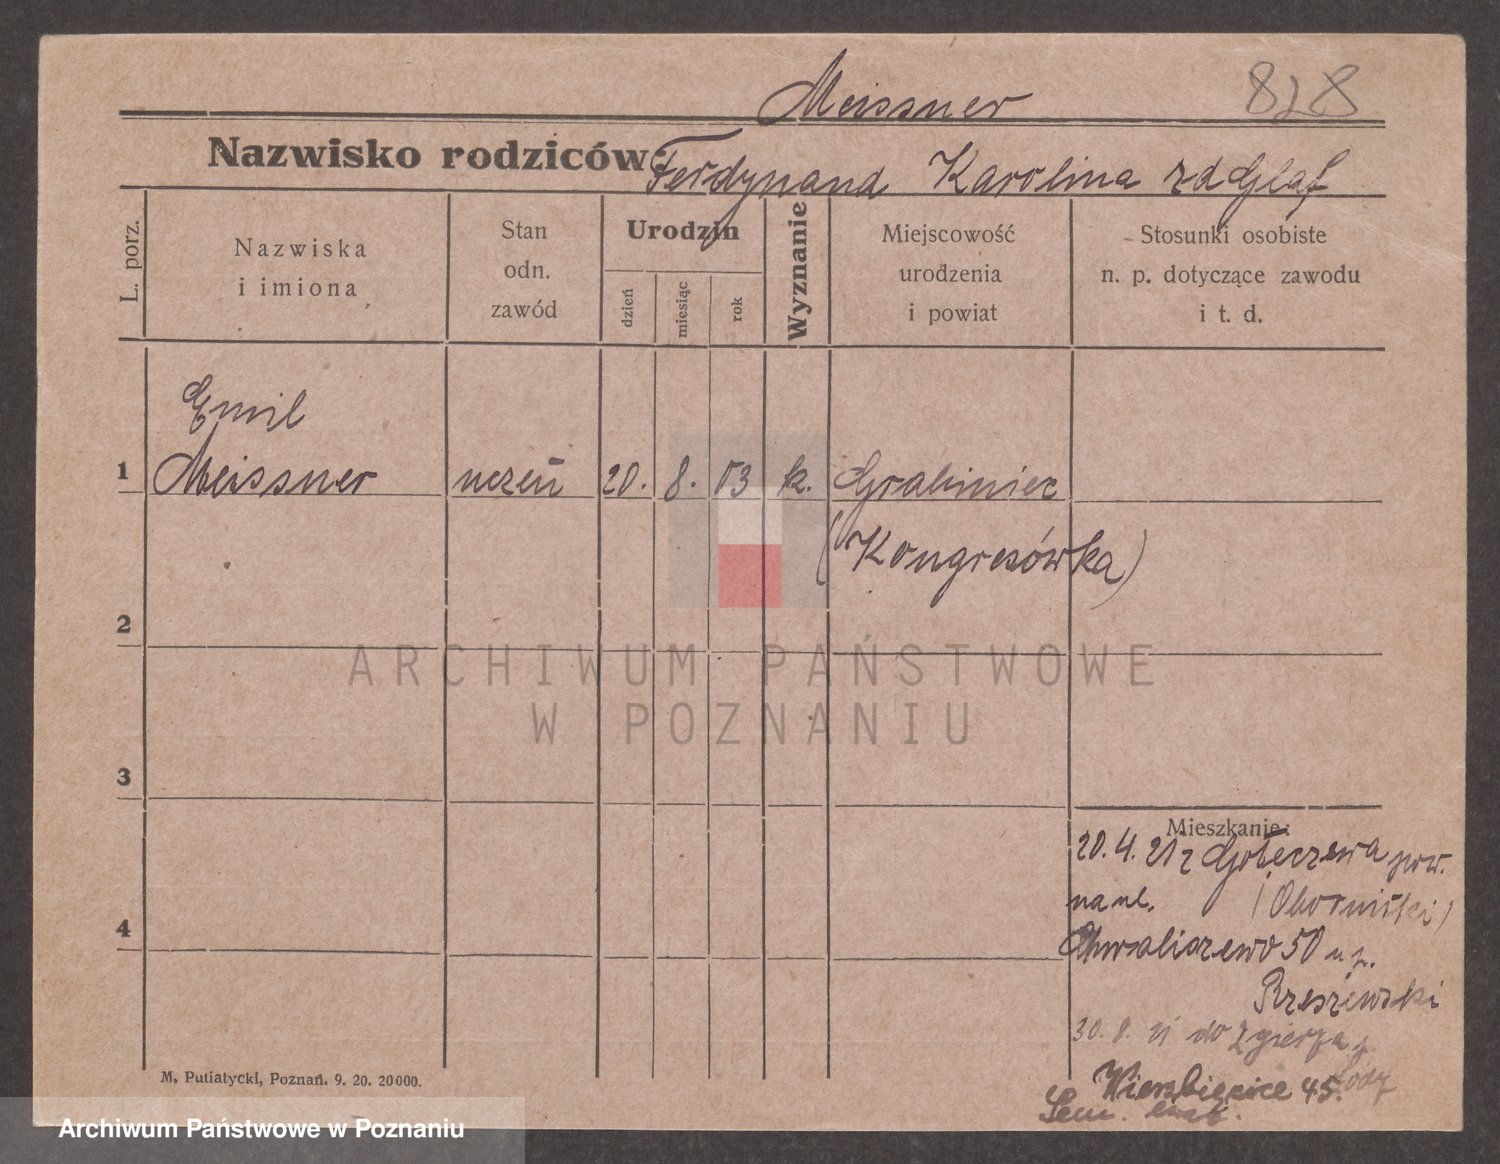 Meissner 828
Nazwisko rodziców: Ferdynand Karolina zd Glaf
L. porz.
Nazwiska
i imiona
Stan
odn.
zawód
Urodzin
dzień
miesiąc
rok
Wyznanie
Miejscowość
urodzenia
i powiat
Stosunki osobiste
n. p. dotyczące zawodu
i t. d.
Emil
1 Meissner uczeń 20. 8. 03 k. Grabiniec
(Kongresówka)
2
ARCHIWUM PAŃSTWOWE
W POZNANIU
3
Mieszkanie:
20. 4. 21 z Gołeczewa pow.
na ul. (Obornicki)
4
Chwaliszewo 50 u p.
Rzeszewski
30. 8. 21 do Zgierza p.
Łódź
Wierzbięcice 45.
Sem.
M. Putiatycki, Poznań. 9. 20. 20000.
Archiwum Państwowe w Poznaniu